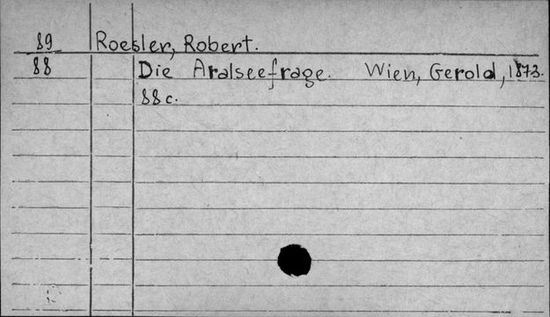 89 Roesler, Robert.
88 Die Aralseefrage. Wien, Gerold, 1873.
88 c.